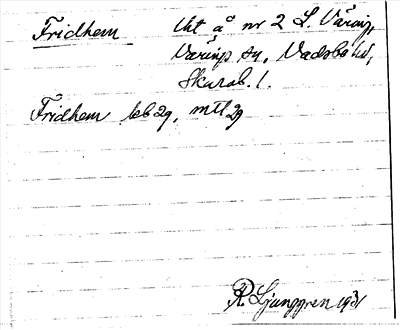 Fridhem Lht å nr 2 L. Väring,
Värings sn, Vadsbo hd,
Skarab. l.
Fridhem kb 29, mtl 29
R. Ljunggren 1931